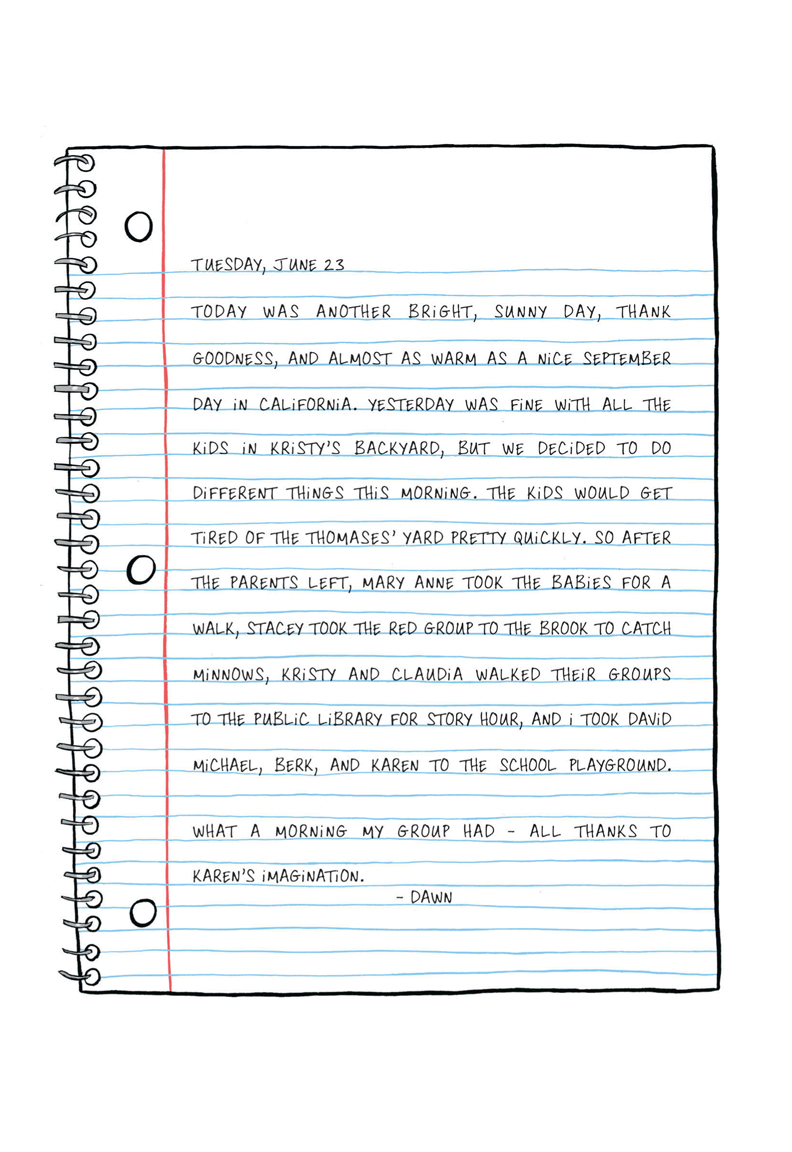 TUESDAY, JUNE 23
TODAY WAS ANOTHER BRiGHT, SUNNY DAY, THANK
GOODNESS, AND ALMOST AS WARM AS A NiCE SEPTEMBER
DAY iN CALiFORNiA. YESTERDAY WAS FiNE WiTH ALL THE
KiDS iN KRiSTY'S BACKYARD, BUT WE DECiDED TO DO
DiFFERENT THiNGS THiS MORNiNG. THE KiDS WOULD GET
TiRED OF THE THOMASES' YARD PRETTY QUiCKLY. SO AFTER
THE PARENTS LEFT, MARY ANNE TOOK THE BABiES FOR A
WALK, STACEY TOOK THE RED GROUP TO THE BROOK TO CATCH
MiNNOWS, KRiSTY AND CLAUDiA WALKED THEiR GROUPS
TO THE PUBLiC LiBRARY FOR STORY HOUR, AND i TOOK DAViD
MiCHAEL, BERK, AND KAREN TO THE SCHOOL PLAYGROUND.
WHAT A MORNiNG MY GROUP HAD – ALL THANKS TO
KAREN'S iMAGiNATiON.
– DAWN